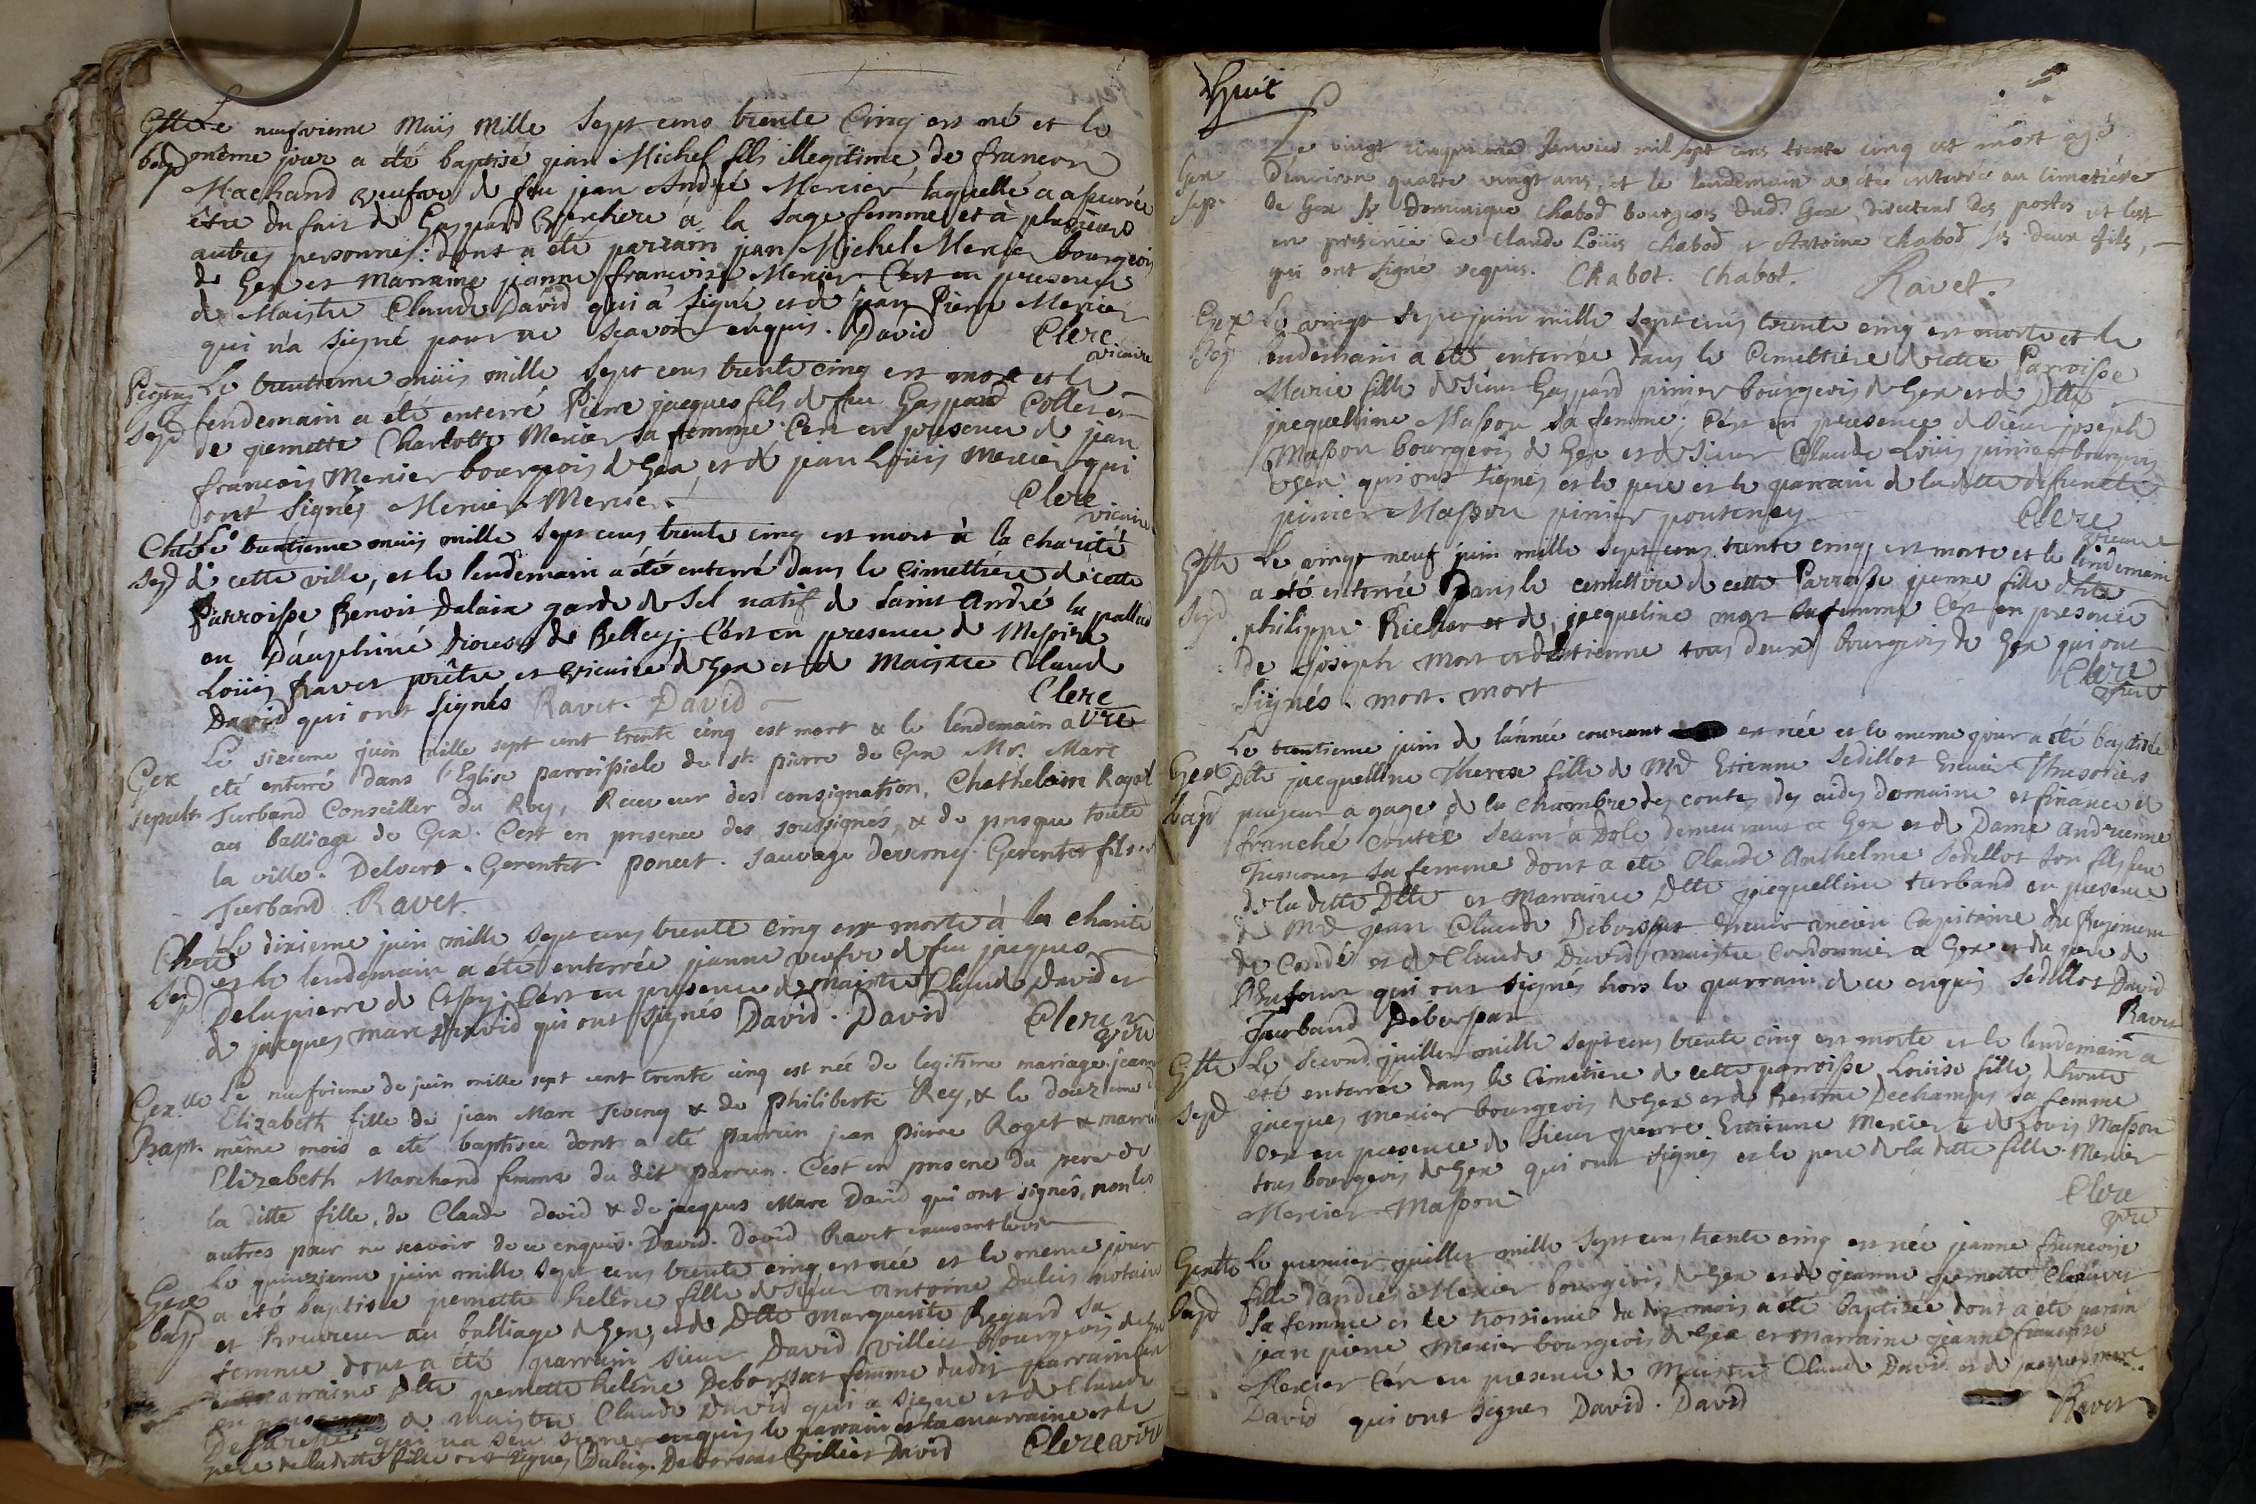 Gtte Le neufvieme May Mille Sept cens trente Cinq est né et le
bap même jour a été baptisé jean Michel fils illegitime de francon
Machand veufve de feu jean André Mercier laquelle a assurée
être du fait de Gaspard à la Sage femme et à plusieurs
autres personnes: dont a été parrain jean Michel Mercier bourgeois
de Gex et Marraine jeanne francoise Mercier C'est en presence
de Maistre Claude David qui a signé et de jean Pierre Mercier
qui n'a signé pour ne scavoir enquis. David Clerc
vicaire
Le trentieme mäy mille Sept cens trente cinq est mort et le
sep lendemain a été enterré Pierre jacques fils de feu Gaspard Collet et
de pernette Charlotte Mercier sa femme. C'est en presence de jean
francois Mercier bourgeois de Gex et de jean Loüis Mercier qui
ont signés Mercier. Mercier. Clerc
vicaire
Le trentieme mäy mille Sept cens trente cinq est mort à la charité
sep de cette ville, et le lendemain a été enterré dans le Cimettiere de cette
Parroisse Benoit Dalaix garde de Sel natif de Saint André la pallud
en Dauphiné Diocese de Belley; C'est en presence de Messire
Loüis Ravet prêtre et vicaire de Gex et de Maistre Claude
David qui ont signés Ravet. David Clerc
vre
Le sixieme juin mille sept cent trente cinq est mort & le lendemain a
Gex été enterré dans l'Eglise parroissiele de st. pierre de Gex Mr. Marc
sepult. Turband Conseiller du Roy, Receveur des consignation, Chathelain Royal
au balliage de Gex. C'est en presence des soussignés, & de presque toute
la ville. Delvert. Gerentet. poncet. sauvage deverny. Gerentet fils.
Turband Ravet.
Le dixieme juin mille Sept cens trente cinq est morte à la charité
sep et le lendemain a été enterrée jeanne veufve de feu jacques
Delapierre de Cessy; C'est en presence de maistre Claude David et
de jacques marc David qui ont signés David. David Clerc
vre
Le neufvieme de juin mille sept cent trente cinq est née de legitime mariage jeanne
Elizabeth fille de jean Marc & de Philiberte Rey, & le douzieme
Bapt. même mois a été baptisée dont a été parrein jean pierre Roget & marreine
Elizabeth Marchand femme du dit parrein. C'est en presence du pere de
la ditte fille, de Claude David & de jacques Marc David qui ont signés, non les
autres pour ne scavoir de ce enquis. David. David Ravet
Le quinzieme juin mille Sept cens trente cinq est née et le meme jour
Gex a été baptisée pernette helêne fille de Sieur Antoine Dulcis notaire
bap et Procureur au balliage de Gex, et de Dlle Marguerite Regard sa
femme dont a été parrain sieur David villiet bourgeois de Gex
marraine Dlle pernette helêne Deborssat femme dudit parrain
de maistre Claude David qui a signé et de Claude
qui n'a seu signer enquis le parrain et la marraine et le
pere de la ditte fille ont signés Dulcis. Deborssat Villiet David Clerc vre
Huit
Le vingt cinquieme Janvier mil sept cens trente cinq est mort agé
Gex d'environ quatre vingt ans, et le lendemain a été enterré au cimetiére
sep. de Gex Sr Dominique Chabod bourgeois dud. Gex, directeur des postes et c'est
en presence de Claude Loüis Chabod et Antoine Chabod ses deux fils,
qui ont signé requis. Chabot. Chabot. Ravet.
Gex Le vingt Sept juin mille Sept cens trente cinq est morte et le
Sep lendemain a été enterrée dans le Cimettiere de cette Parroisse
Marie fille de Sieur Gaspard pinier bourgeois de Gex et de Dlle
jacquelline Masson sa femme; C'est en presence de Sieur joseph
Masson bourgeois de Gex et de Sieur Claude Loüis pinier bourgeois
de Gex qui ont signés et le pere et le parrain de la ditte defunete
pinier Masson pinier Clerc
vicaire
Gtte Le vingt neuf juin mille Sept cens trente cinq est morte et le lendemain
a été enterrée Dans le cemettiere de cette Parroisse jeanne fille d'hte
Sep philippe Richar et de jacqueline mort sa femme C'est en presence
de joseph mort et d'Estienne tous deux bourgeois de Gex qui ont
Signés. mort. mort Clerc
vre
Le trentieme juin de l'année courant est née et le meme jour a été baptisée
Gex Dlle jacquelline Therese fille de Mr Etienne Sedillot Ecuier Thresorier
bap payeur a gages de la Chambre des contes des aides domaine et finance de
franche Conté Seant à Dole demeurant a Gex et de Dame Andrienne
sa femme dont a été Claude Anthelme Sedillot son
de la ditte Dlle et Marraine Dlle jacquelline turband en presence
de Mr jean Claude Deborssat Ecuier ancien Capitaine du Regiment
de Condé et de Claude David maistre Cordonnier a Gex et du pere de
l'Enfant qui ont signés hors le parrain de ce enquis Sedillot David
Turband Deborssat Ravet
Gtte Le Second juillet mille Sept cens trente cinq est morte et le lendemain a
été enterrée dans le Cimetiere de cette parroisse Loüise fille d'honte
Sep jacques mercier bourgeois de Gex et de Dechamps sa femme
C'est en presence de Sieur pierre Etienne Mercier & de Louis Masson
tous bourgeois de Gex qui ont signés et le pere de la ditte fille. Mercier
Mercier Masson Clerc
vre
Gextte Le premier juillet mille Sept cens trente cinq est née jeanne francoise
fille d'andrez Mercier bourgeois de Gex et de jeanne pernette
bap Sa femme et le troisieme du dit mois a été baptisée dont a été parain
jean piere Mercier bourgeois de Gex et marraine jeanne francoise
Mercier C'est en presence de Maistre Claude David et de jacques marc
David qui ont signes David. David Ravet